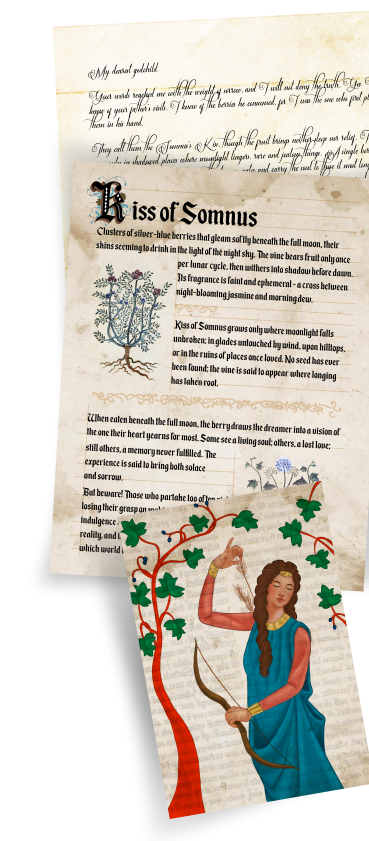 My dearest godchild,
Your words reached me with the weight of sorrow, and I will not deny the truth. Yes
know of your father's visit. I know of the berries he consumed, for I was the one who first
them in his hand.
They call them the Somnus's Kiss, though the fruit brings neither sleep nor relief. T
in shadowed places where moonlight lingers, rare and jealous things. A single
and carry the soul to
Kiss of Somnus
Clusters of silver-blue berries that gleam softly beneath the full moon, their
skins seeming to drink in the light of the night sky. The vine bears fruit only once
per lunar cycle, then withers into shadow before dawn.
Its fragrance is faint and ephemeral - a cross between
night-blooming jasmine and morning dew.
Kiss of Somnus grows only where moonlight falls
unbroken; in glades untouched by wind, upon hilltops,
or in the ruins of places once loved. No seed has ever
been found; the vine is said to appear where longing
has taken root.
When eaten beneath the full moon, the berry draws the dreamer into a vision of
the one their heart yearns for most. Some see a living soul; others, a lost love;
still others, a memory never fulfilled. The
experience is said to bring both solace
and sorrow.
But beware! Those who partake too often
losing their grasp on
indulgence
reality, and
which world